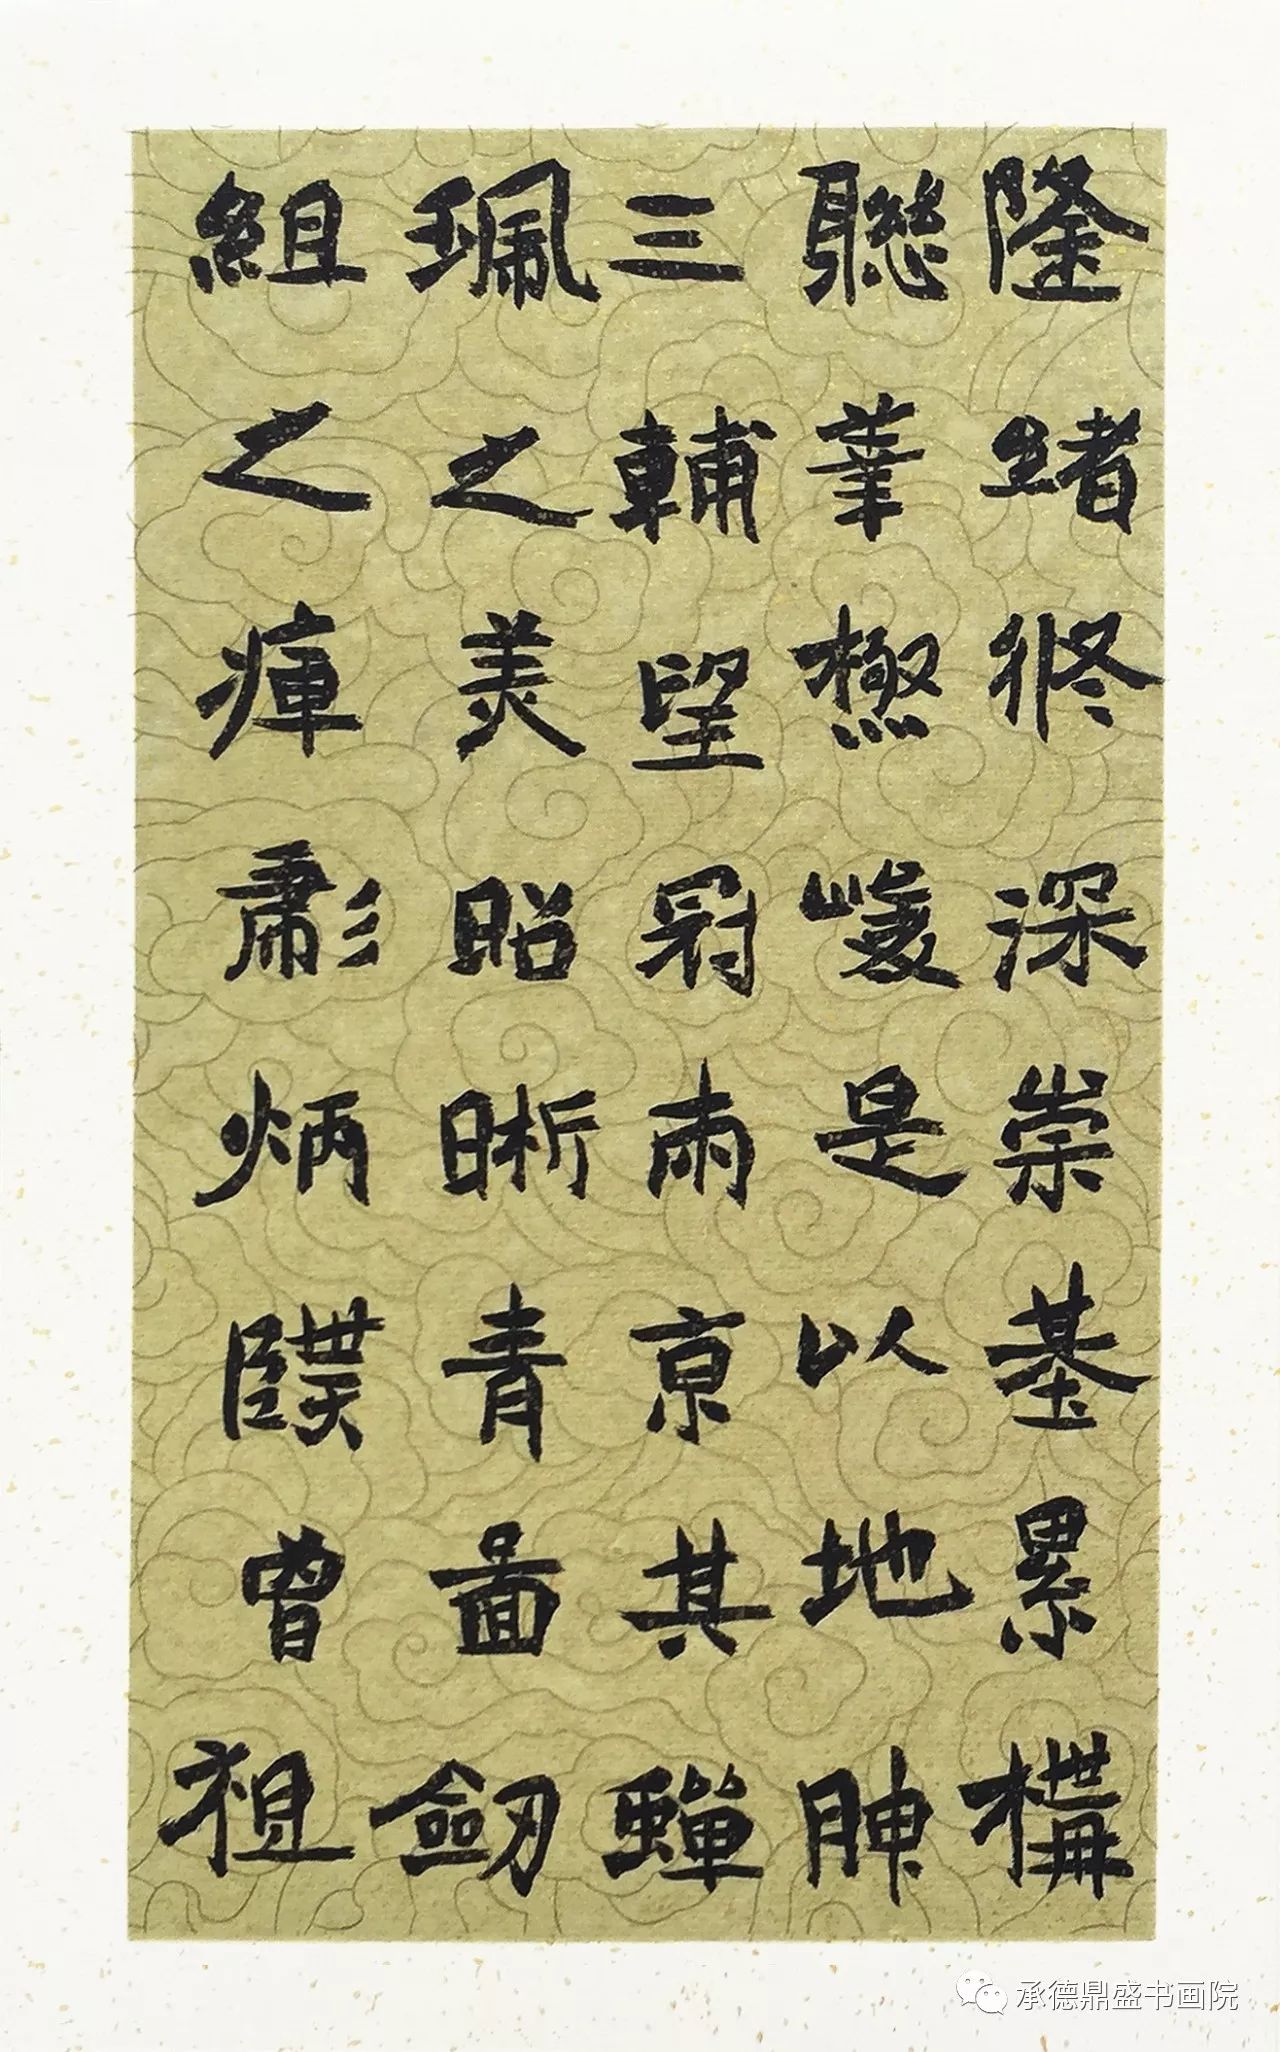 隆緒修深崇基累構
聯華極峻是以地腆
三輔望冠兩京其蟬
珮之美昭晰青啚劒
組之暉彪炳䐣曾祖
承德鼎盛书画院